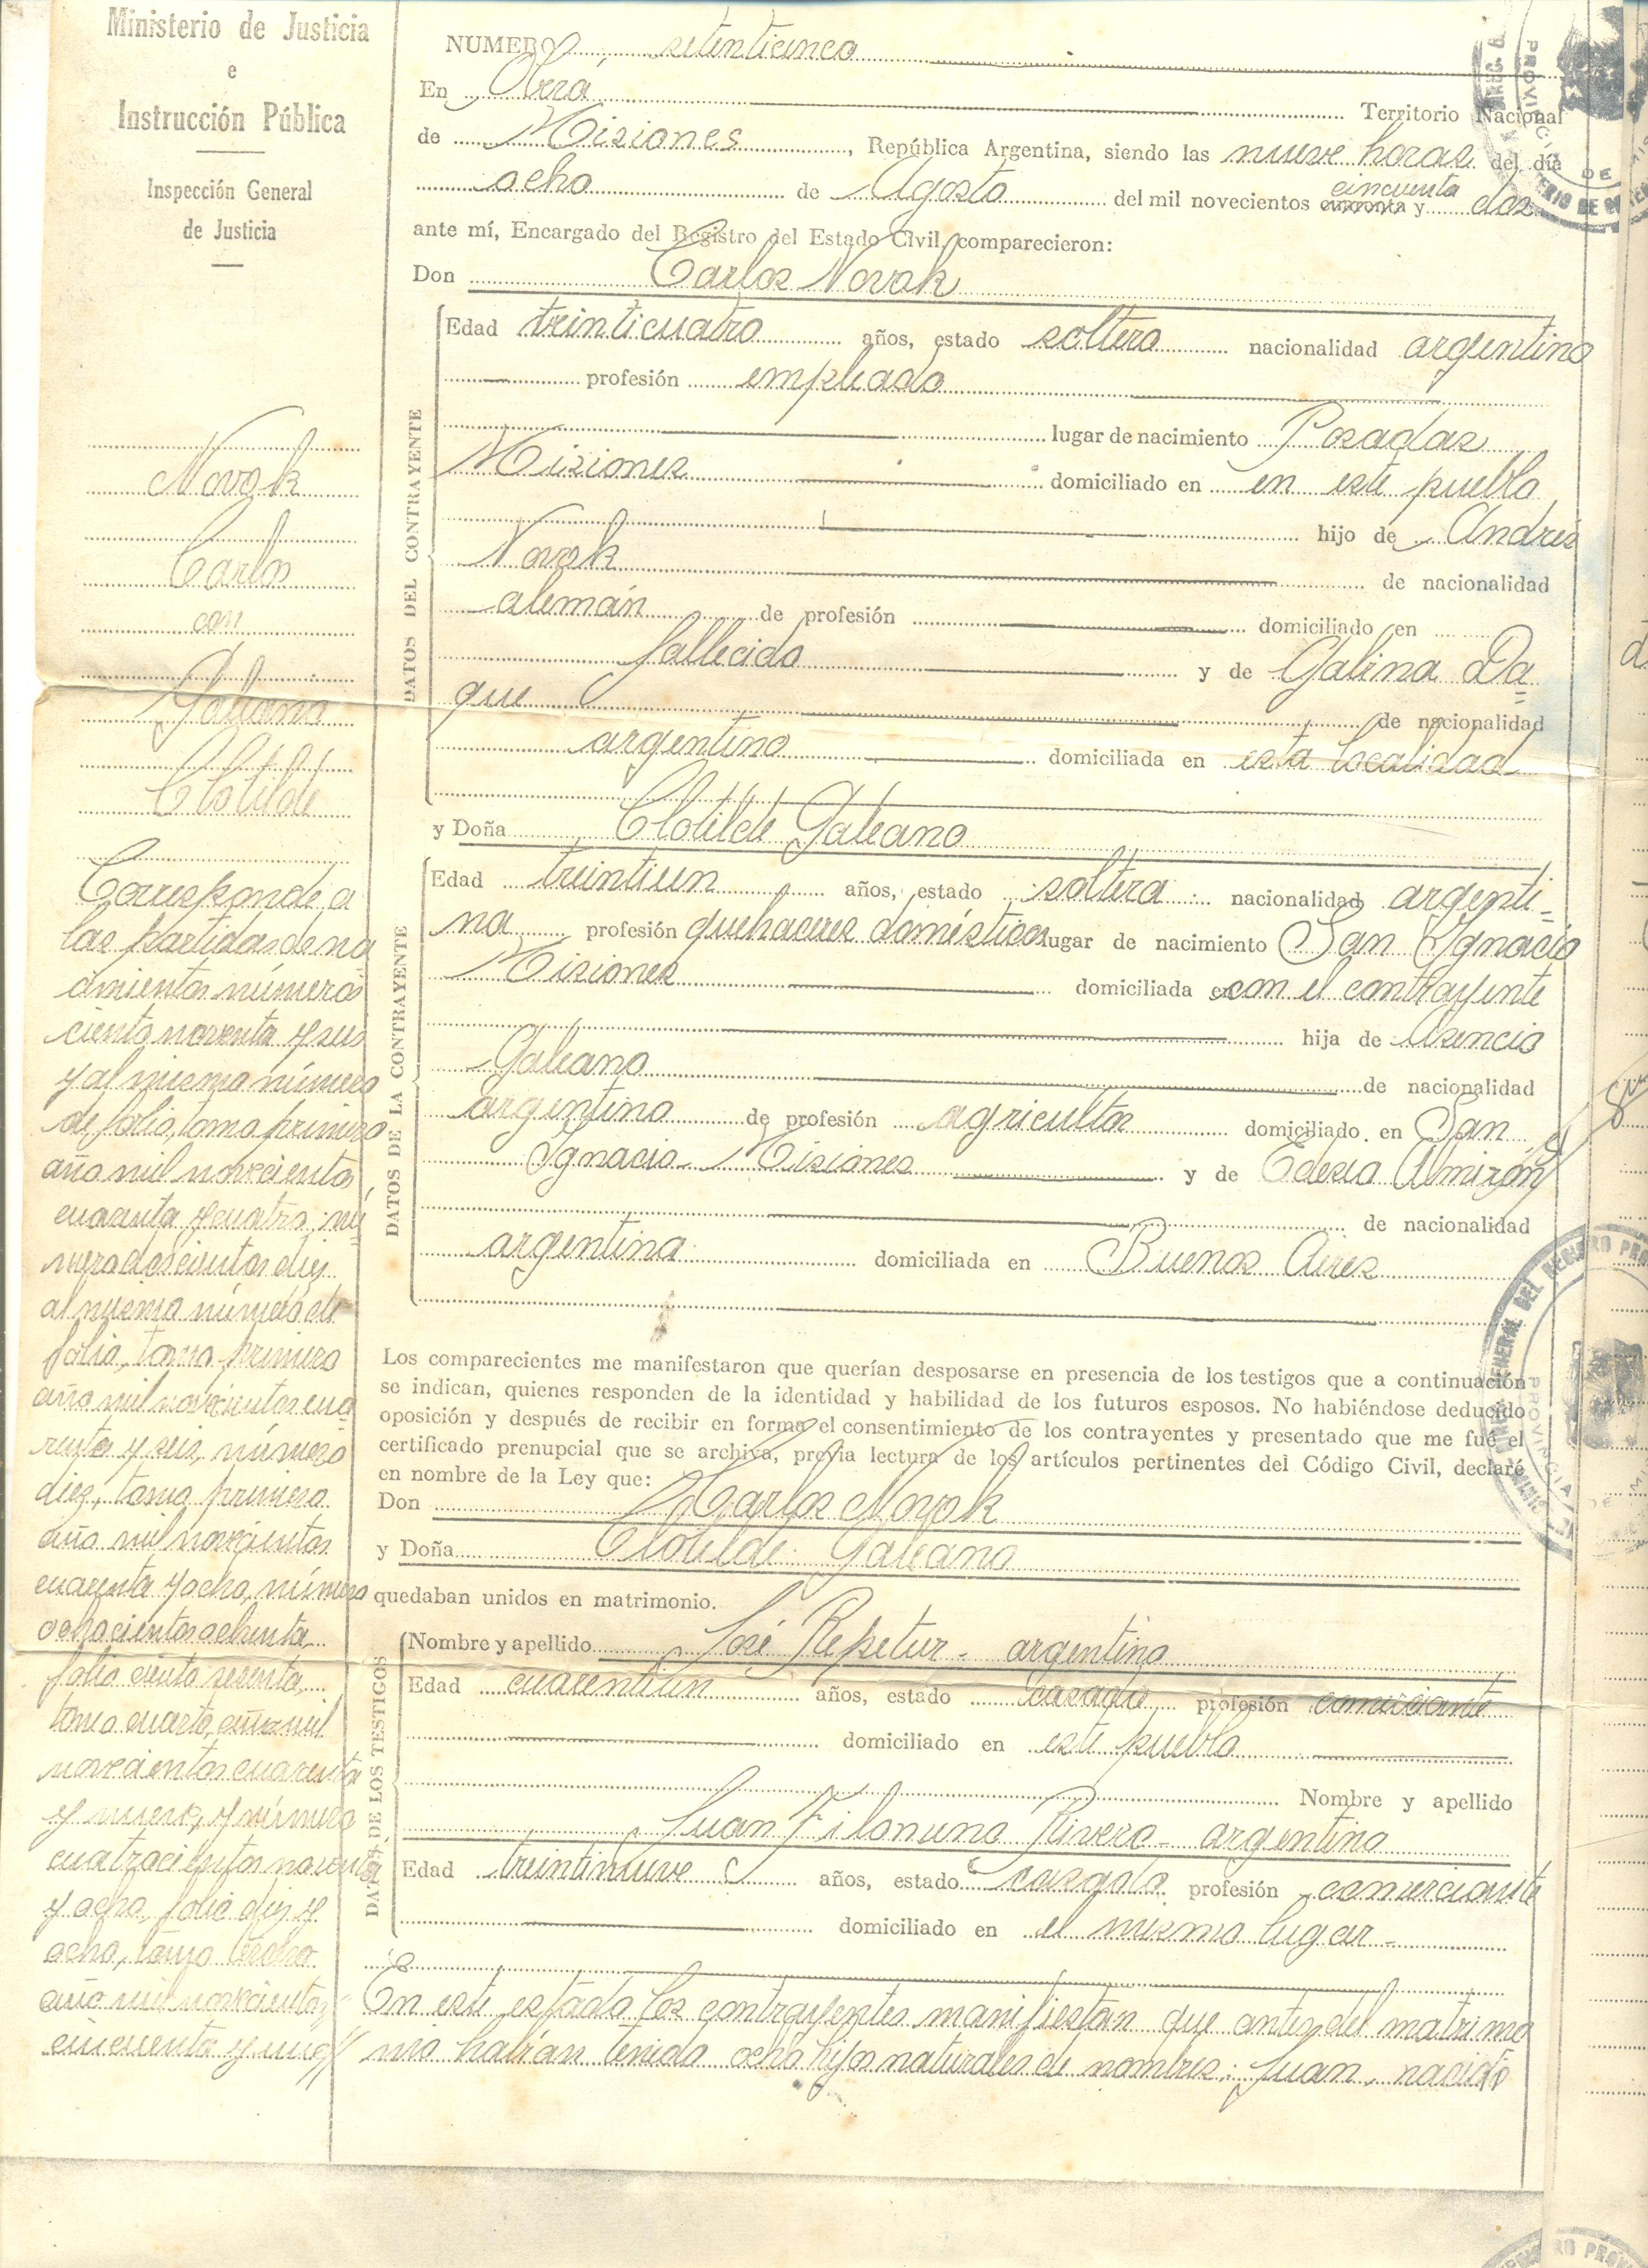 Ministerio de Justicia
e
Instrucción Pública
Inspección General
de Justicia
Novak
Carlos
con
Galeano
Clotilde
Corresponde a
las partidas de na
cimientos número
ciento noventa y seis
y al mismo número
de folio, tomo primero
año mil novecientos
cuarenta y cuatro, nú
mero doscientos diez
al mismo número de
folio, tomo primero
año mil novecientos cua
renta y seis, número
diez, tomo primero
año mil novecientos
cuarenta y ocho, número
ochocientos ochenta
folio ciento sesenta
tomo cuarto, año mil
novecientos cuarenta
y nueve, y número
cuatrocientos noventa
y ocho, folio diez y
ocho, tomo tercero
año mil novecientos
cincuenta y uno//
NUMERO setenticinco
En Oberá, Territorio Nacional
de Misiones, República Argentina, siendo las nueve horas del día
ocho de Agosto del mil novecientos cincuenta y dos
ante mí, Encargado del Registro del Estado Civil, comparecieron:
Don Carlos Novak
DATOS DEL CONTRAYENTE
Edad treinticuatro años, estado soltero nacionalidad argentino
profesión empleado
lugar de nacimiento Posadas
Misiones domiciliado en en este pueblo
hijo de Andrés
Novak de nacionalidad
alemán de profesión domiciliado en
fallecido y de Galina Da=
que de nacionalidad
argentino domiciliada en esta localidad
y Doña Clotilde Galeano
DATOS DE LA CONTRAYENTE
Edad treintiun años, estado soltera nacionalidad argenti=
na profesión quehaceres domésticos lugar de nacimiento San Ignacio
Misiones domiciliada en con el contrayente
hija de Asencio
Galeano de nacionalidad
argentino de profesión agricultor domiciliado en San
Ignacio - Misiones y de Edesia Almirón
de nacionalidad
argentina domiciliada en Buenos Aires
Los comparecientes me manifestaron que querían desposarse en presencia de los testigos que a continuación
se indican, quienes responden de la identidad y habilidad de los futuros esposos. No habiéndose deducido
oposición y después de recibir en forma el consentimiento de los contrayentes y presentado que me fué el
certificado prenupcial que se archiva, previa lectura de los artículos pertinentes del Código Civil, declaré
en nombre de la Ley que:
Don Carlos Novak
y Doña Clotilde Galeano
quedaban unidos en matrimonio.
DATOS DE LOS TESTIGOS
Nombre y apellido José Repetur - argentino
Edad cuarentiun años, estado casado profesión comerciante
domiciliado en este pueblo
Nombre y apellido
Juan Filomeno Rivero - argentino
Edad treintinueve años, estado casado profesión comerciante
domiciliado en el mismo lugar -
En este estado los contrayentes manifiestan que antes del matrimo
nio habían tenido ocho hijos naturales de nombres: Juan, nacido